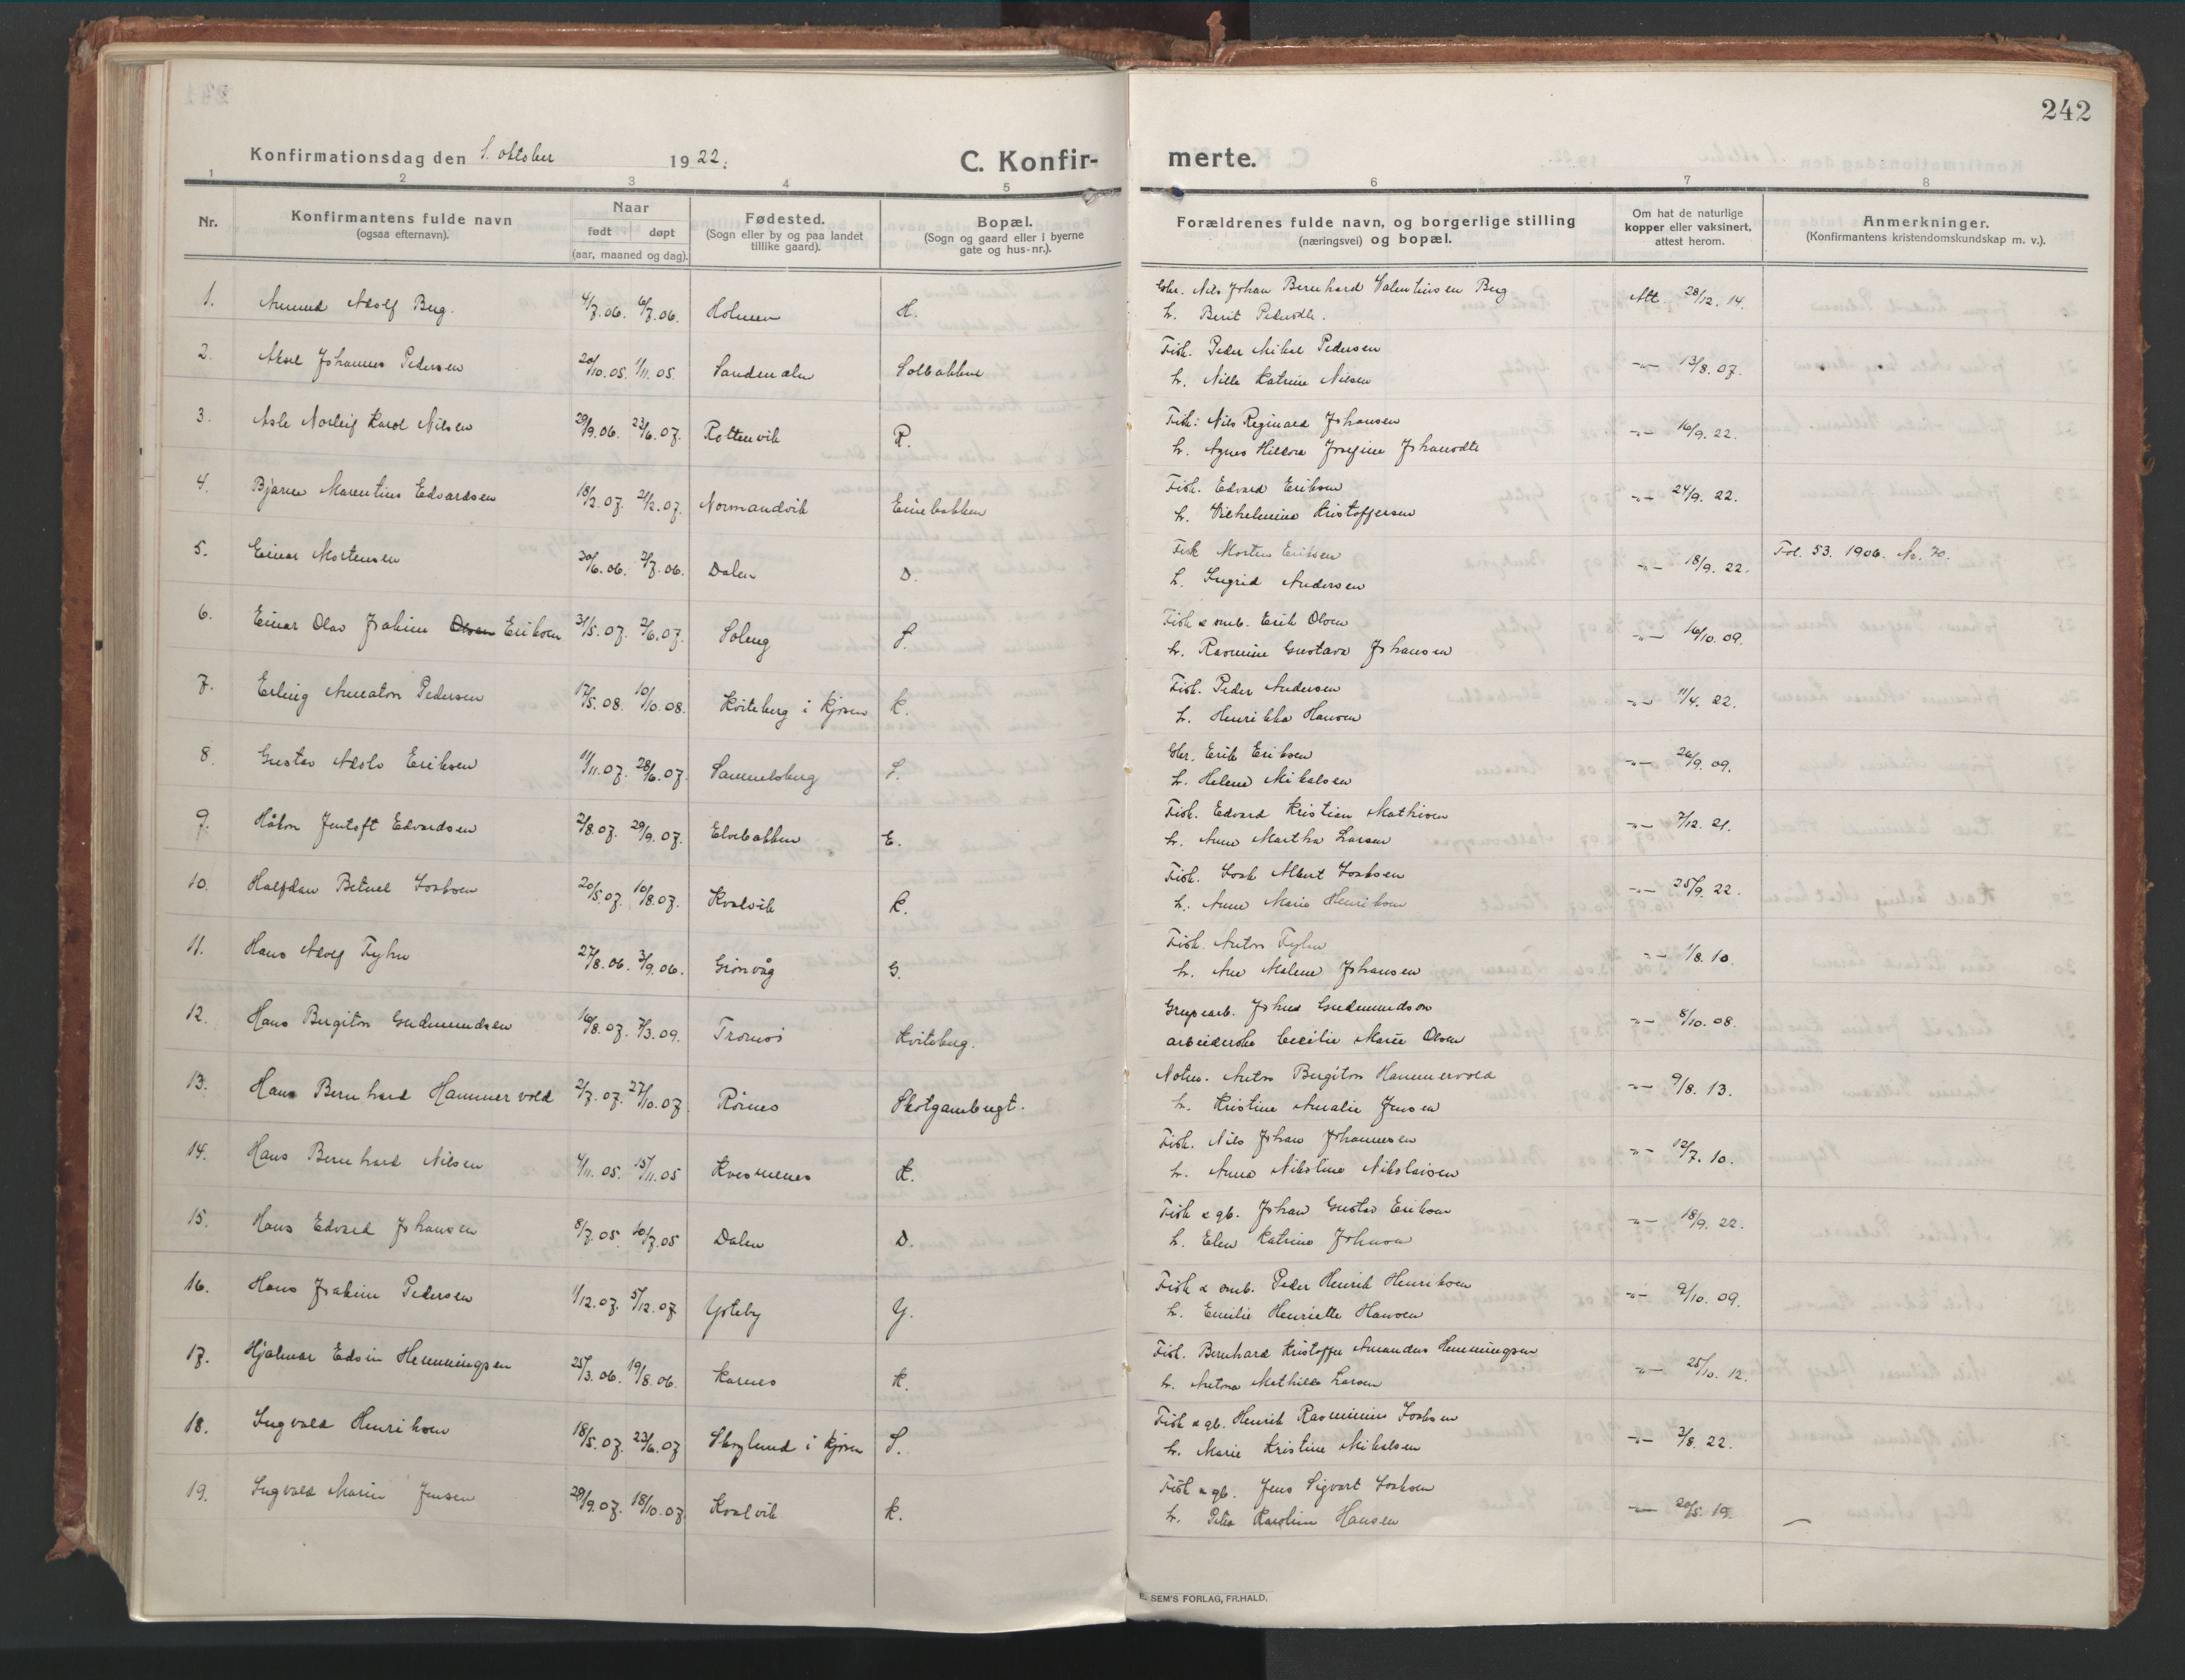 242
Konfirmationsdag den 1. oktober 1922.
C. Konfir- merte.
1 2 3 4 5 6 7 8
Nr.
Konfirmantens fulde navn
(ogsaa efternavn).
Naar
født døpt
(aar, maaned og dag).
Fødested.
(Sogn eller by og paa landet
tillike gaard).
Bopæl.
(Sogn og gaard eller i byerne
gate og hus-nr.).
Forældrenes fulde navn, og borgerlige stilling
(næringsvei) og bopæl.
Om hat de naturlige
kopper eller vaksinert,
attest herom.
Anmerkninger.
(Konfirmantens kristendomskundskap m. v.).
1. Amund Adolf Berg. 4/7.06. 6/7.06. Holmen H. Nils Johan Bernhard Valentinsen Berg Att. 28/12. 14.
h. Berit Pedersdtr.
2. Aksel Johannes Pedersen 20/10.05. 1/11.05. Sandenalen Solbakken Fisk. Peder Mikal Pedersen -"- 13/8. 07.
h. Nille Katrine Nilsen
3. Asle Norleif Karol Nilsen 29/9.06. 23/6.07. Rottenvik R. Fisk. Nils Reginard Johansen -"- 16/9. 22.
h. Agnes Hildora Josefine Johansdtr
4. Bjarne Marentius Edvardsen 18/2.07. 21/2.07. Normandvik Einebakken Fisk. Edvard Eriksen -"- 24/9. 22.
h. Vilhelmine Kristoffersen
5. Einar Mortensen 30/6.06. 2/7.06. Dalen D. Fisk Morten Eriksen -"- 18/9. 22. Fol. 53. 1906. Nr. 70.
h. Ingrid Andersen
6. Einar Olav Joakim Olsen Eriksen 31/5.07. 2/6.07. Soleng S. Fisk & smb. Erik Olsen -"- 16/10. 09.
h. Rasmine Gustava Johansen
7. Erling Ameaton Pedersen 17/5.08. 10/10.08. Kviteberg i Kjosen K. Fisk. Peder Andersen -"- 11/4. 22.
h. Henrikka Hansen
8. Gustav Adolv Eriksen 11/11.07. 28/6.07. Samuelsberg S. Erik Eriksen -"- 26/9. 09.
h. Helene Mikalsen
9. Håkon Jentoft Edvardsen 2/8.07. 29/9.07. Elvebakken E. Fisk. Edvard Kristian Mathisen -"- 7/12. 21.
h. Anne Martha Larsen
10. Halfdan Betuel Isaksen 20/5.07. 10/8.07. Kvalvik K. Fisk. Isak Albert Isaksen -"- 25/9. 22.
h. Anne Marie Henriksen
11. Hans Adolf Fyhn 27/8.06. 3/9.06. Grønvåg G. Fisk. Anton Fyhn -"- 1/8. 10.
h. Ane Malene Johansen
12. Hans Birgiton Gudmundsen 16/8.07. 7/3.09. Tromsø Kviteberg. Grupearb. Johnes Gudmundson -"- 8/10. 08.
arbeiderske Cecilie Marie Olsen
13. Hans Bernhard Hammervold 2/7.07. 27/10.07. Rörnes Skotgambugt. Anton Birgiton Hammervold -"- 9/8. 13.
h. Kristine Amalie Jensen
14. Hans Bernhard Nilsen 4/11.05. 15/11.05 Kvesmenes K. Fisk. Nils Johan Johannesen -"- 12/7. 10.
h. Anna Nikoline Nikolaisen
15. Hans Edvard Johansen 8/7.05. 16/7.05 Dalen D. Fisk & gb. Johan Gustav Eriksen -"- 18/9. 22.
h. Elen Katrine Johnsen
16. Hans Joakim Pedersen 1/12.07. 5/12.07 Ysteby Y. Fisk & smb. Peder Henrik Henriksen -"- 9/10. 09.
h. Emilie Henriette Hansen
17. Hjalmar Edvin Hemmingsen 25/3.06. 19/8.06. Karnes K. Fisk. Bernhard Kristoffer Amandus Hemmingsen -"- 25/10. 12.
h. Antona Mathilde Larsen
18. Ingvald Henriksen 18/5.07. 23/6.07 Skoglund i Kjosen S. Fisk & gb. Henrik Rasminius Isaksen -"- 3/8. 22.
h. Marie Kristine Mikalsen
19. Ingvald Marin Jensen 29/9.07. 18/10.07. Kvalvik K. Fisk & gb. Jens Sigvart Isaksen -"- 20/5. 19.
h. Petra Karoline Hansen
E. SEM'S FORLAG, FR.HALD.